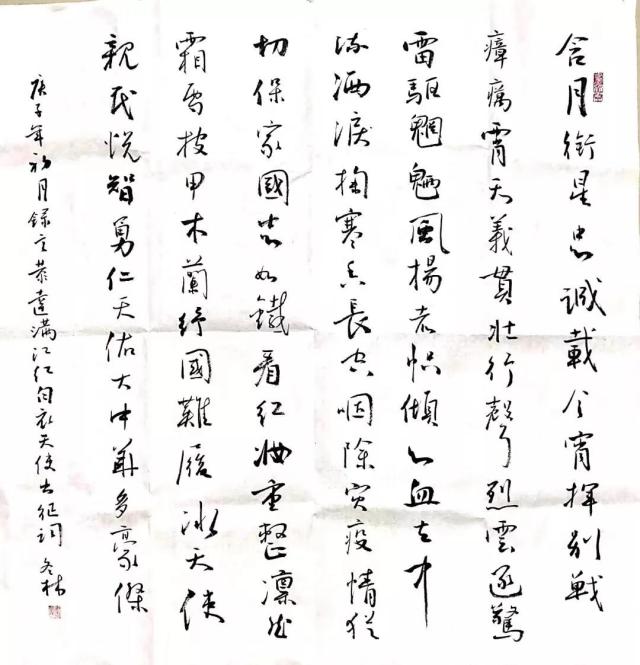 含月銜星忠誠載今宵揮別戰
瘴癘霄天義貫壯行聲烈雲逐驚
雷驅魍魎風揚赤幟傾心血去中
流洒淚掬寒長空咽除疫情猶
切保家國志如鐵看紅妝重整凜然
霜雪披甲木蘭紓國難履冰天使
親民悅智勇仁天佑大中華多豪傑
庚子年初月錄言恭達滿江紅白衣天使出征詞 冬林